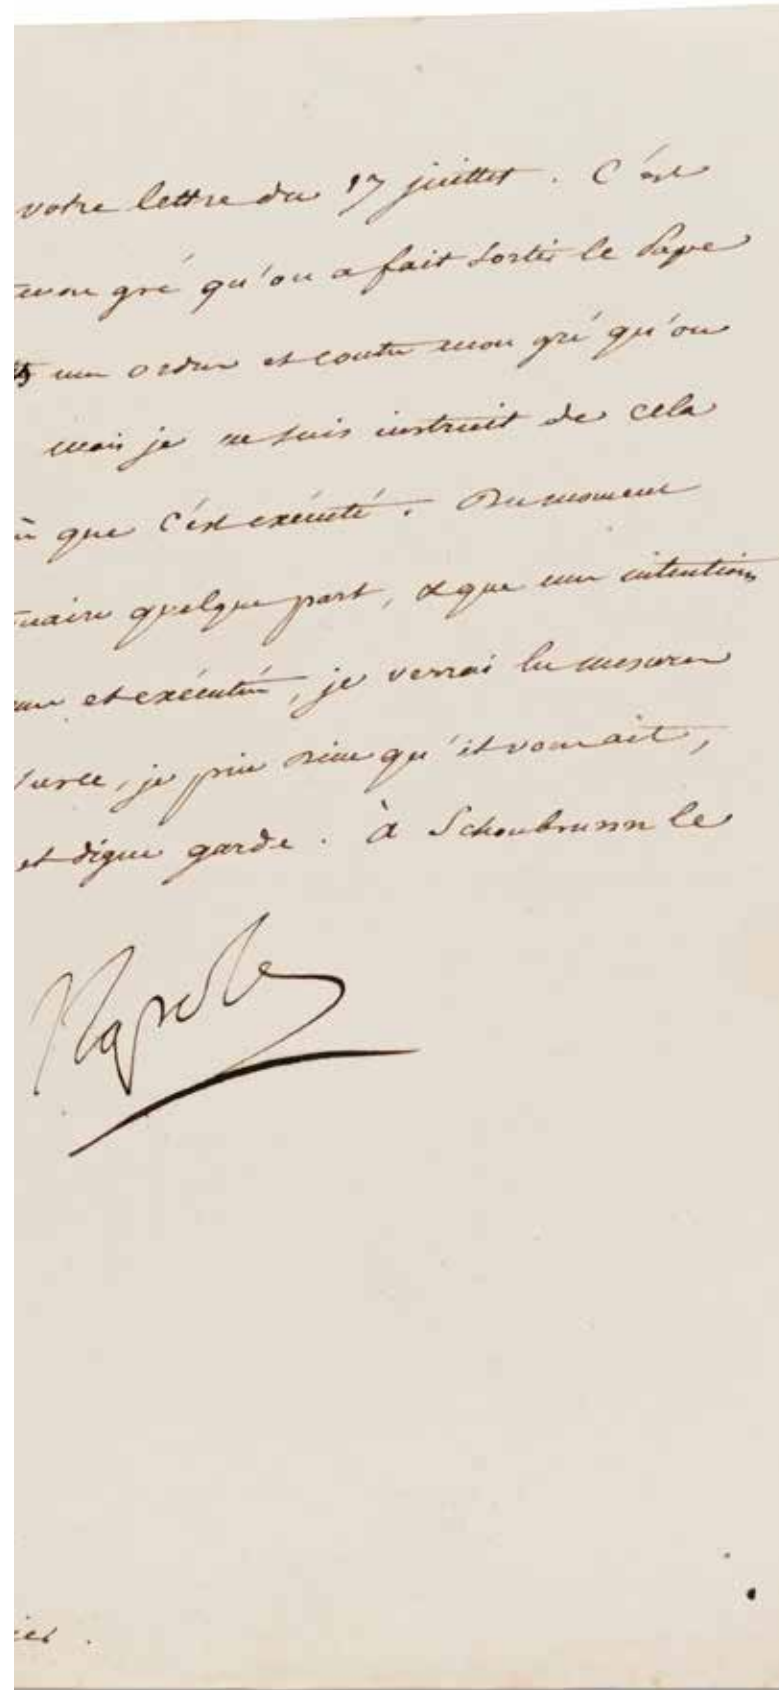 votre lettre du 17 juillet. C'est
gré qu'on a fait sortir le Pape
mes ordres et contre mon gré qu'on
mais je ne suis instruit de cela
que c'est exécuté. Du moment
quelque part, & que mes intentions
et exécutées, je verrai les mesures
je prie Dieu qu'il vous ait,
et digne garde. à Schonbrunn le
Napole